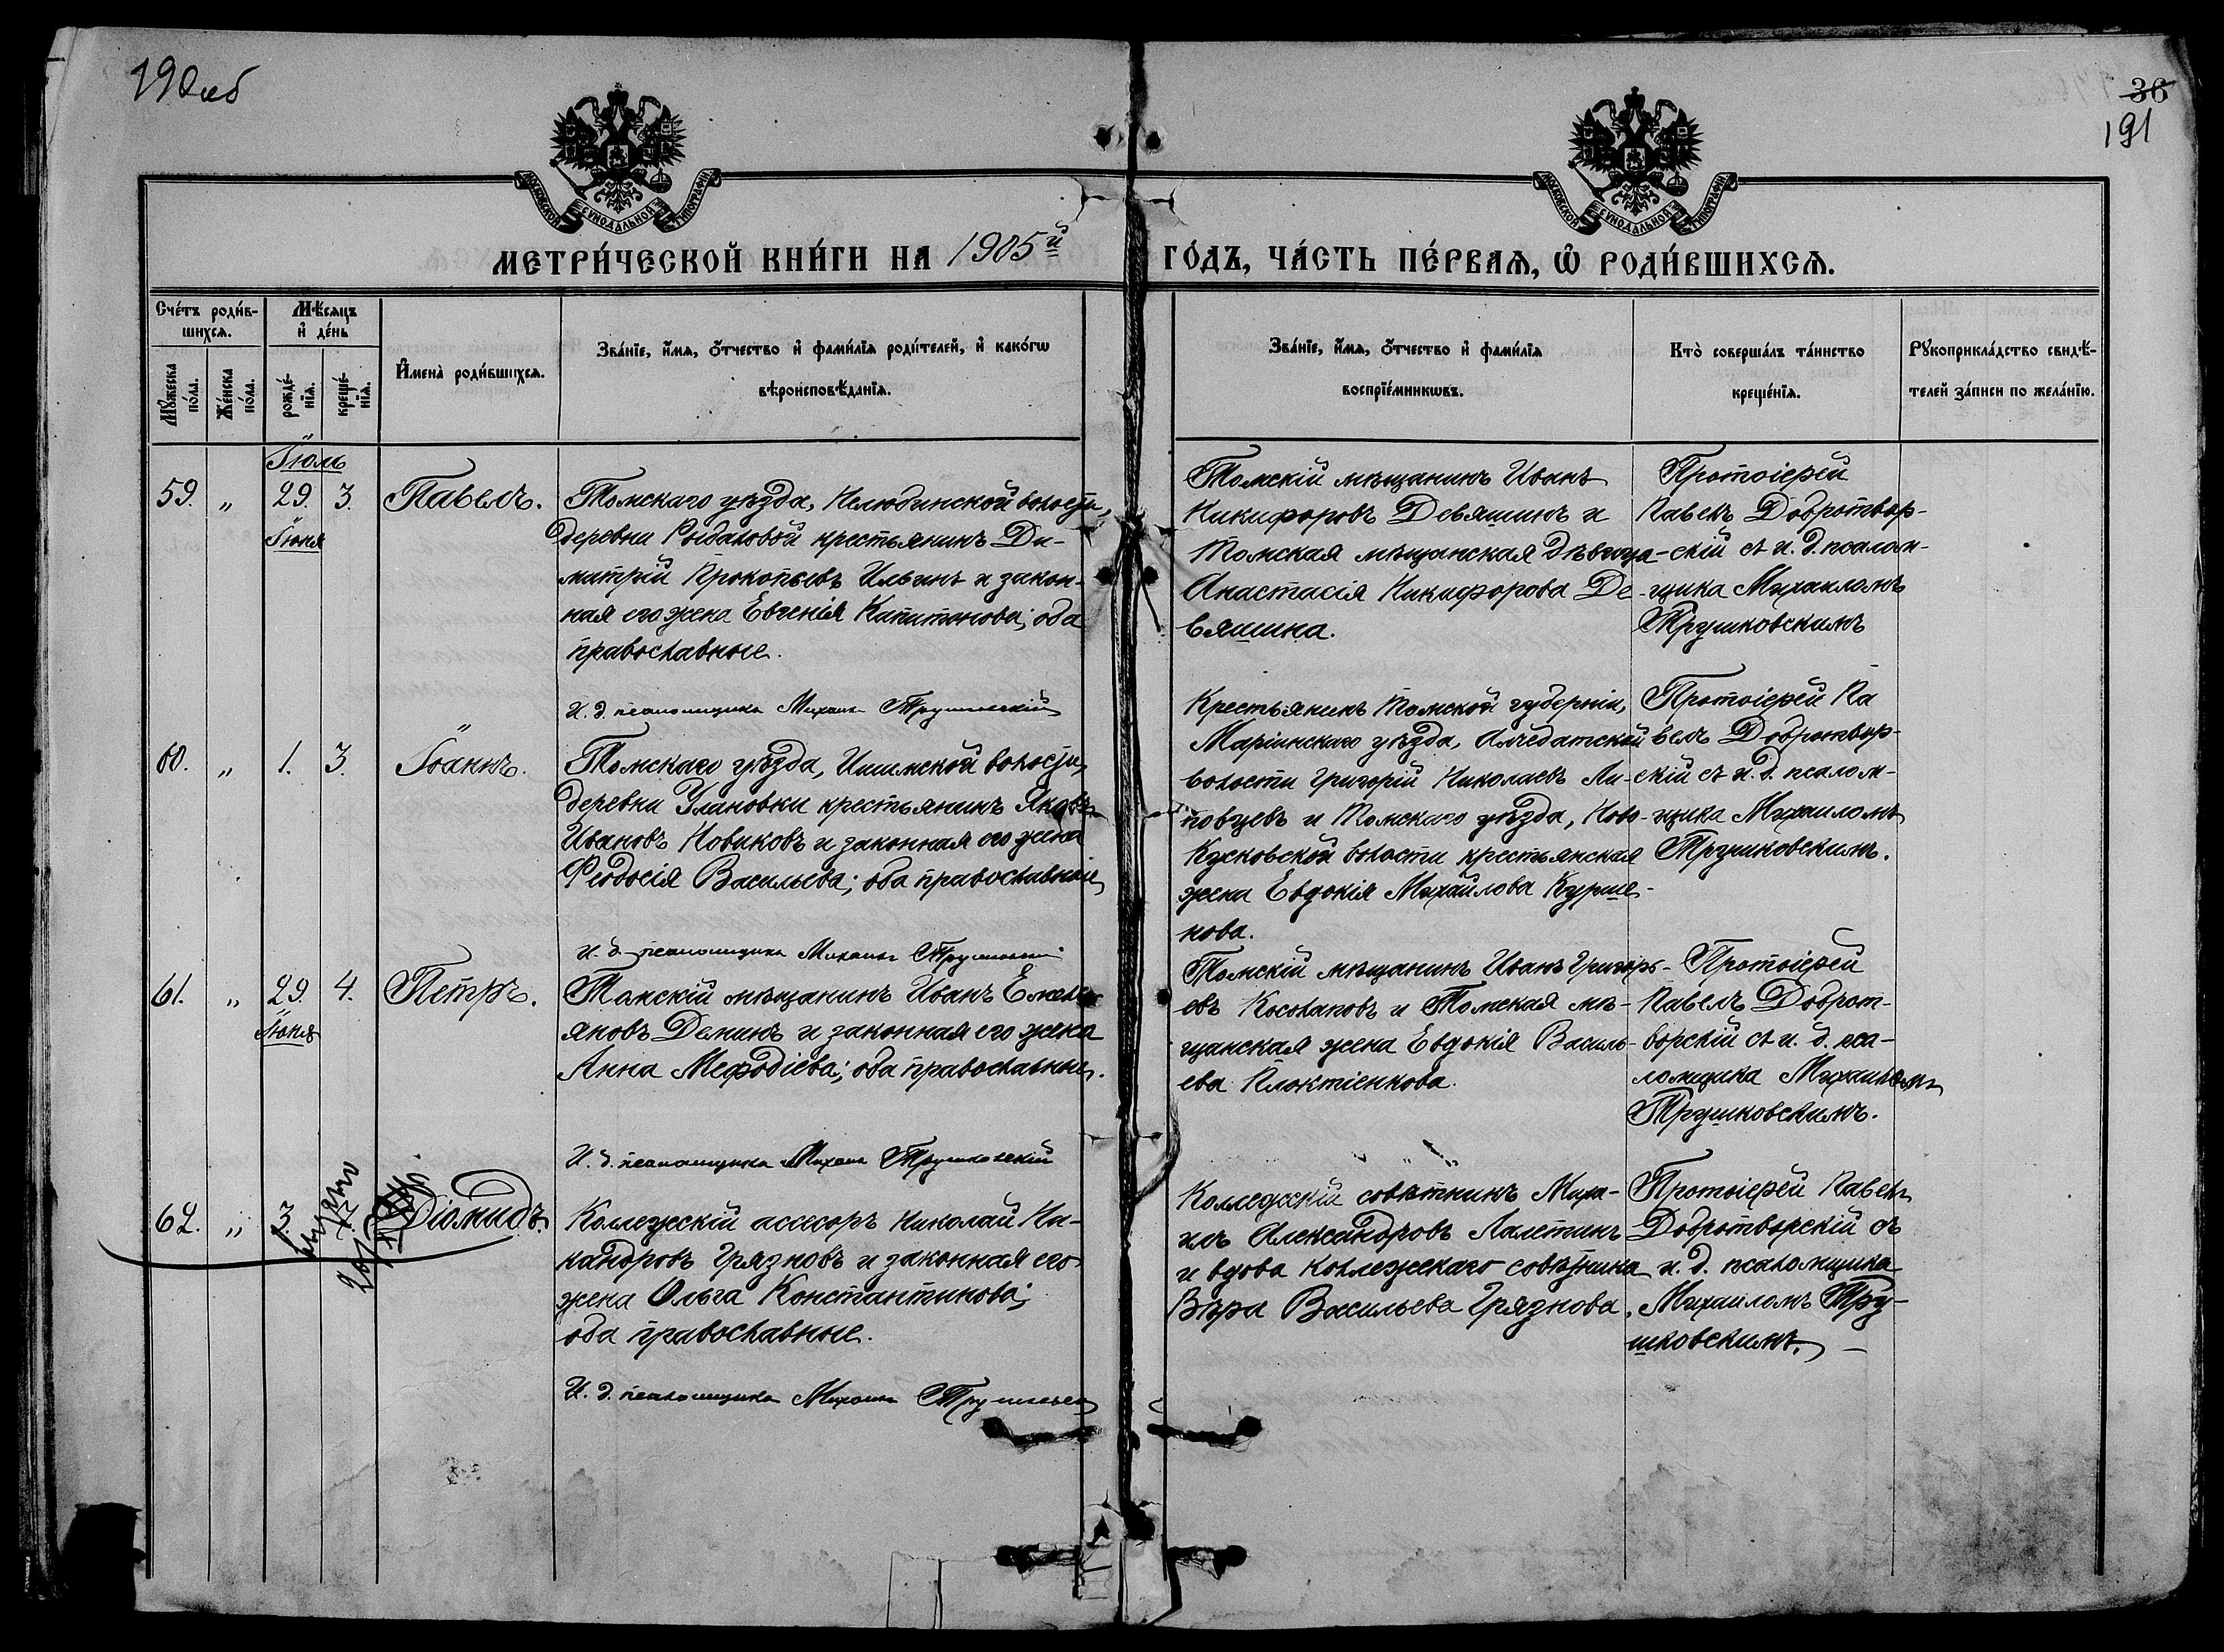 190 об
36
191
МОСКОВСКОЙ СУНОДАЛЬНОЙ ТИПОГРАФІИ
МОСКОВСКОЙ СУНОДАЛЬНОЙ ТИПОГРАФІИ
МЕТРИ́ЧЕСКОЙ КНИ́ГИ НА 1905й ГО́ДЪ, ЧА́СТЬ ПЕ́РВАѦ, Ѡ РОДИ́ВШИХСѦ.
Сче́тъ роди́в-
шихсѧ.
Мѣ́сѧцъ
и҆ де́нь
Мꙋ́жеска
по́ла.
Же́нска
по́ла.
рожде́-
нїѧ.
креще́-
нїѧ.
И҆мена̀ роди́вшихсѧ.
Зва́нїе, и҆́мѧ, ѻ҆́тчество и҆ фами́лїѧ роди́телей, и҆ како́гѡ
вѣроисповѣ́данїѧ.
Зва́нїе, и҆́мѧ, ѻ҆́тчество и҆ фами́лїѧ
воспрїе́мникѡвъ.
Кто̀ соверша́лъ та́инство
креще́нїѧ.
Рꙋкоприкла́дство свидѣ́-
телей за́писи по жела́нїю.
Іюль
59. „ 29. 3. Павелъ.
Іюня
Томскаго уѣзда, Нелюбинской волости,
деревни Рыбаловой крестьянинъ Ди-
митрій Прокопьевъ Ильинъ и закон-
ная его жена Евгенія Капитонова; оба
православные.
И. д. псаломщика Михаилъ Трушковскій
Томскій мѣщанинъ Иванъ
Никифоровъ Девяшинъ и
Томская мѣщанская дѣвица
Анастасія Никифорова Де-
вяшина.
Протоіерей
Павелъ Добротвор-
скій съ и. д. псалом-
щика Михаиломъ
Трушковскимъ
60. „ 1. 3. Іоаннъ.
Томскаго уѣзда, Ишимской волости,
деревни Улановки крестьянинъ Яковъ
Ивановъ Новиковъ и законная его жена
Феодосія Васильева; оба православные
И. д. псаломщика Михаилъ Трушковскій
Крестьянинъ Томской губерніи,
Маріинскаго уѣзда, Алчедатской
волости Григорій Николаевъ Ли-
повцевъ и Томскаго уѣзда, Ново-
Кусковской волости крестьянская
жена Евдокія Михайлова Курше-
нова.
Протоіерей Па
велъ Добротвор-
скій съ и. д. псалом-
щика Михаиломъ
Трушковскимъ.
61. „ 29. 4. Петръ.
Іюня
Томскій мѣщанинъ Иванъ Емель-
яновъ Деминъ и законная его жена
Анна Мефодіева; оба православные.
И. д. псаломщика Михаилъ Трушковскій
Томскій мѣщанинъ Иванъ Григорь-
евъ Косолаповъ и Томская мѣ-
щанская жена Евдокія Василь-
ева Плоктіенкова.
Протоіерей
Павелъ Доброт-
ворскій съ и. д. пса-
ломщика Михаиломъ
Трушковскимъ.
62. „ 3. Діомидъ.
Коллежскій ассесоръ Николай Ни-
кандровъ Грязновъ и законная его
жена Ольга Константинова;
оба православные.
И. д. псаломщика Михаилъ Трушковскій
Коллежскій совѣтникъ Миха-
илъ Александровъ Лалетинъ
и вдова коллежскаго совѣтника
Вѣра Васильева Грязнова.
Протоіерей Павелъ
Добротворскій съ
и. д. псаломщика
Михаиломъ Тру-
шковскимъ.